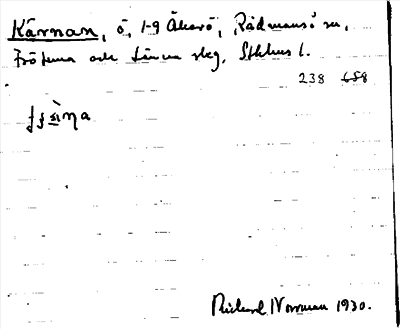 Kärnan, ö, 1-9 Åkerö, Rådmansö sn,
Frötuna och Länna skg, Sthlms l.
238 658
Richard Norrman 1930.